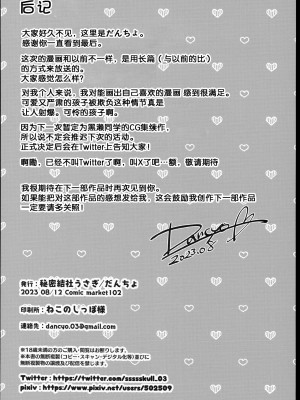 后记
大家好久不见，这里是だんちょ。
感谢你一直看到最后。
这次的漫画和以前不一样，是用长篇（与以前的比）
的方式来放送的。
大家感觉怎么样？
对我个人来说，我对能画出自己喜欢的漫画 感到很满足。
可爱又严肃的孩子被欺负这种情节真是
让人射爆。可怜的孩子啊。
因为下一次暂定为黑濑同学的CG集续作，
所以说不定会推迟下次的活动。
正式决定后会在Twitter上告知大家！
啊嘞，已经不叫Twitter了啊，叫X了吧…额，敬请期待
我很期待在下一部作品时再次见到你。
如果能把对这部作品的感想发给我，这会鼓励我创作下一部作品
一定要请多关照！
Dancyo
2023.08
発行：秘密結社うさぎ/だんちょ
2023 08/12 Comic market102
印刷所：ねこのしっぽ様
連絡先：dancyo.03@gmail.com
※18歳未満の方のご購入・閲覧はお断りします。
※本書の無断複製（コピー・スキャン・デジタル化等）並びに
無断複製物の譲渡及び配信を禁じます。
Twitter：https://twitter.com/ssssskull_03
pixiv：https://www.pixiv.net/users/502509